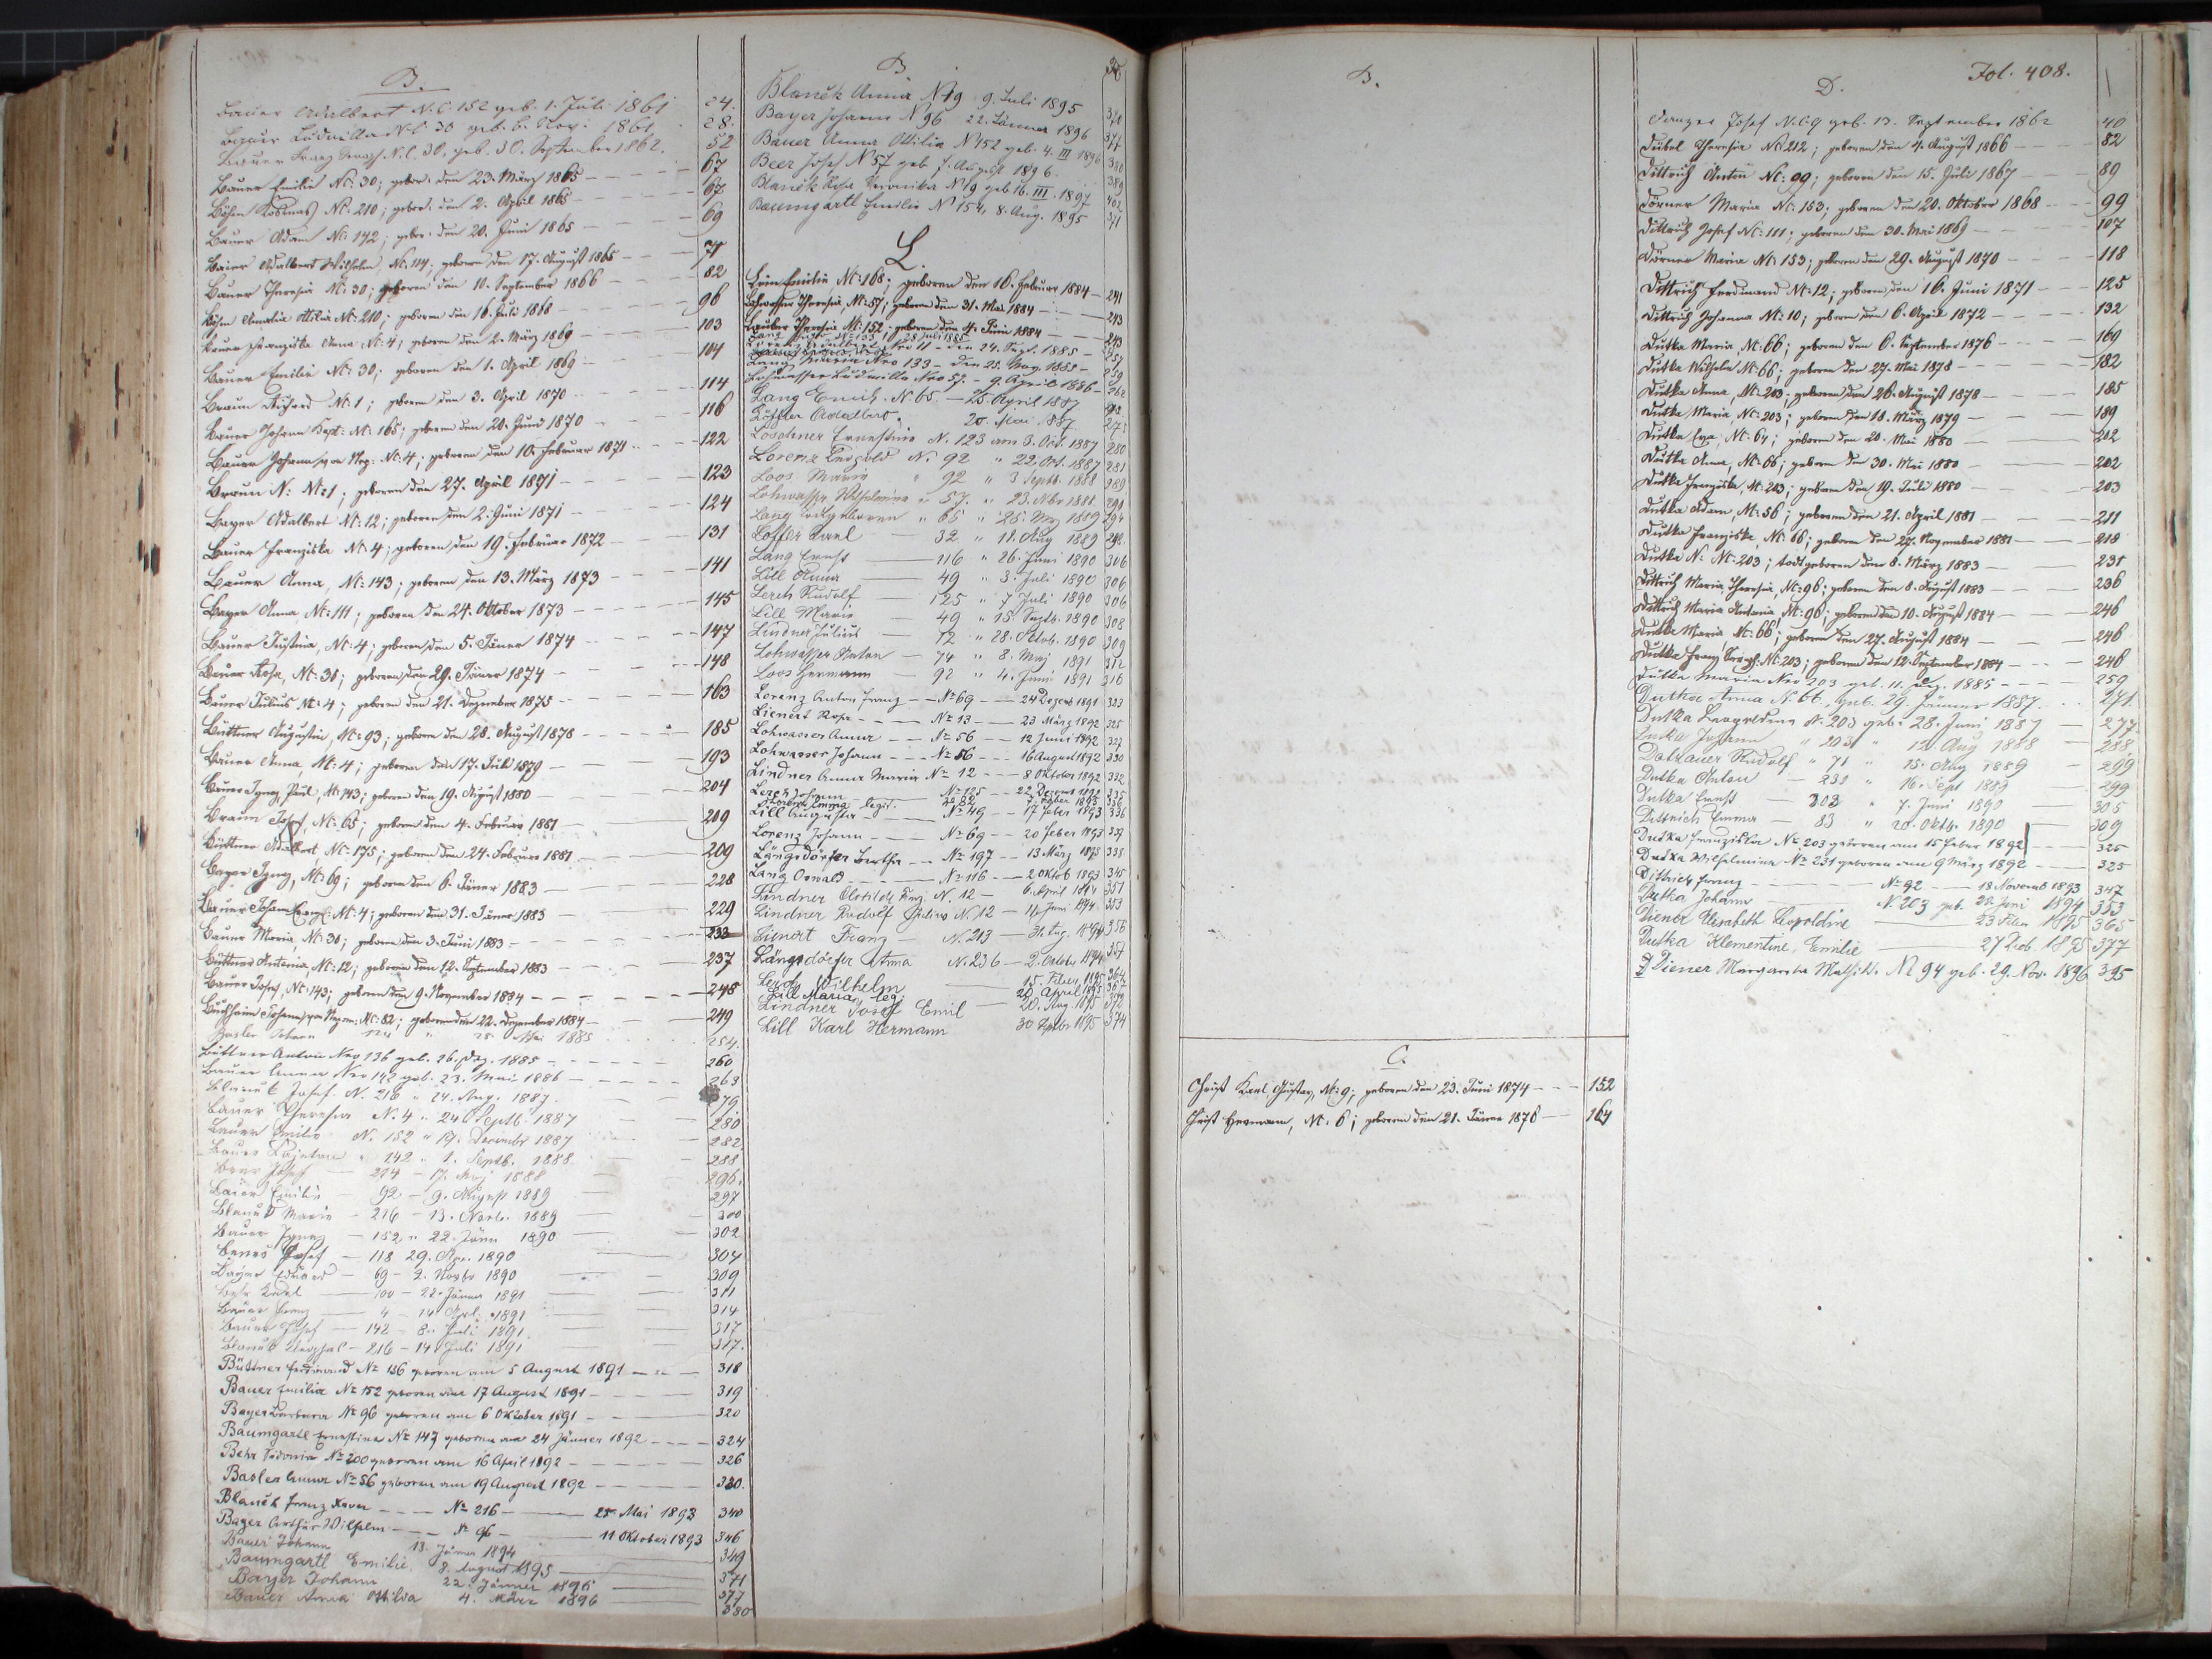 B.
Bauer Adalbert N.C. 152 geb. 1. Juli 1861 24.
Bauer Ludmilla N.C. 30 geb. 6. Nov. 1861 28.
Bauer Franz Seraf N.C. 30, geb. 30. September 1862. 52
Bauer Emilie NC: 30; gebor. den 23. März 1865 67
Böhm Kosmas NC: 210; gebor. den 2. April 1865 67
Bauer Adam NC: 142; gebor. den 20. Juni 1865 69
Baier Adalbert Wilhelm, NC: 114; geboren den 17. August 1865 71
Bauer Theresia NC: 30; geboren den 10. September 1866 82
Böhm Amalia Ottilia NC: 210; geboren den 16. Juli 1868 96
Bauer Franziska Anna NC: 4; geboren den 2. März 1869 103
Bauer Emilie NC: 30; geboren den 1. April 1869 104
Braun Richard NC: 1; geboren den 3. April 1870 114
Bauer Johann Bapt: NC: 165; geboren den 20. Juni 1870 116
Bauer Johann von Nep: NC: 4; geboren den 10. Februar 1871 122
Braun N: NC: 1; geboren den 27. April 1871 123
Bayer Adalbert NC: 12; geboren den 2. Juni 1871 124
Bauer Franziska NC: 4; geboren den 19. Februar 1872 131
Bauer Anna, NC: 143; geboren den 13. März 1873 141
Bayer Anna NC: 111; geboren den 24. Oktober 1873 145
Bauer Justina, NC: 4; geboren den 5. Jäner 1874 147
Bauer Rosa, NC: 30; geboren den 29. Jäner 1874 148
Bauer Julius NC: 4; geboren den 21. Dezember 1875 163
Büttner Augustin, NC: 93; geboren den 28. August 1878 185
Bauer Anna, NC: 4; geboren den 17. Juli 1879 193
Bauer Ignaz Paul, NC: 143; geboren den 19. August 1880 204
Braun Josef, NC: 65; geboren den 4. Februar 1881 209
Büttner Adalbert, NC: 175; geboren den 24. Februar 1881 209
Bayer Ignaz, NC: 69; geboren den 6. Jäner 1883 228
Bauer Johann Evang: NC: 4; geboren den 31. Jäner 1883 229
Bauer Maria, NC: 30; geboren den 3. Juni 1883 233
Büttner Antonia, NC: 12; geboren den 12. September 1883 237
Bauer Josef, NC: 143; geboren den 9. November 1884 248
Buchheim Johann von Nepom: NC: 82; geboren den 22. Dezember 1884 249
Basler " 25 Mai 1885 254.
Büttner Anton Nro 136 geb. 26. Dez. 1885 260
Bauer Anna Nro 142 geb. 23. Mai 1886 263
Blanék Josef. N. 216 " 24. Aug. 1887. 279
Bauer Theresia N. 4 " 24 Septb. 1887 280
Bauer Emilie N. 152 " 17. Decembr 1887 282
Bauer Kajetan " 142 " 1. Septb. 1888 288
Beer Josef 214 - 17. Maj 1888 296.
Baier Emilie 92 - 9. August 1889 297
Blanék Marie - 216 - 13. Novb. 1889 300
Bauer Ignaz 152 " 22. Jänn 1890 302
Benes Josef 118 29. Apr. 1890 304
Bayer Eduard - 69 - 2. Novbr 1890 309
Behr Karl 200 - 22. Jänner 1891 311
Bauer Franz 4 - 14 Apl. 1891 314
Bauer Josef 142 - 8. Juli 1891 317
Blanék - 216 - 14 Juli 1891 317.
Büttner Ferdinand No 136 geboren am 5 August 1891 318
Bauer Emilia No 152 geboren am 17 August 1891 319
Bayer Barbara No 96 geboren am 6 Oktober 1891 320
Baumgartl Ernestine No 147 geboren am 24 Jänner 1892 324
Behr Sidonia No 200 geboren am 16 April 1892 326
Basler Anna No 56 geboren am 19 August 1892 330.
Blanék Franz Xaver No 216 25. Mai 1893 340
Bayer Arthur Wilhelm No 96 11 Oktober 1893 346
Bauer Johann 13. Jänner 1894 349
Baumgartl Emilie, 8. August 1895 371
Bayer Johann 22. Jänner 1896 377
Bauer Anna Ottilia 4. März 1896 380
B
Blanék Anna N 19 9. Juli 1895 370
Bayer Johann N 96 22. Jänner 1896 377
Bauer Anna Ottilia N 152 geb. 4. III 1896 380
Beer Josef N 57 geb 7. August 1896. 389
Blanék Rosa Veronika N 19 geb 16. III. 1897 402
Baumgartl Emilie N 154, 8. Aug. 1895 371
L.
Emilie, NC: 168; geboren den 16. Februar 1884 241
Lohwasser Theresia, NC: 57; geboren den 31. Mai 1884 243
Lauber Theresia NC: 152; geboren den 4. Juni 1884 243
Lang 133 28 Juli 1885
Lorenz Adalbert, Nro 11 - den 24. Sept. 1885 257
Lang Maria Nro 133 - den 25. Nov. 1885 259
Lohwasser Ludmilla Nro 57. - 9. April 1886 262
Lang Emil. N 65 - 25 April 1887
Löffler Adalbert. 20. Mai 1887 275
Loschner Ernestine N. 123 am 3. Oct. 1887 280
Lorenz Leopold N. 92 " 22 Oct. 1887 281
Loos Marie " 92 " 3 Septb. 1888 289
Lohwasser Wilhelmine " 57. " 23. Nbr 1888. 290
Lang todtgeboren " 65 " 25. Mrz 1889 294
Löffler Karl 32 " 11. Aug 1889 298.
Lang Ernst 116 " 26. Juni 1890 306
Lill Anna 49 " 3. Juli 1890 306
Lerch Rudolf 125 " 7 Juli 1890 306
Lill Marie 49 " 15. Septb. 1890 308
Lindner Julius 12 " 28. Octob. 1890 309
Lohwasser Anton 74 " 8. Maj 1891 312
Loos Hermann 92 " 4. Juni 1891 316
Lorenz Anton Franz No 69 24 Dezemb 1891 323
Lienert Rosa No 13 23 März 1892 325
Lohwasser Anna No 56 12 Juni 1892 327
Lohwasser Johann No 56 16 August 1892 330
Lindner Anna Maria No 12 8 Oktober 1892 332
Lerch Johann No 125 22 Dezemb 1892 335
Lorenz Emma legit. No 82 7. Feber 1893 336
Lill Augusta No 49 17 Feber 1893 336
Lorenz Johann No 69 20 Feber 1893 337
Längsdörfer Bertha No 197 13 März 1893 338
Lang Oswald No 116 2 Oktob 1893 345
Lindner Clotilde Franz. N. 12 6. April 1894 351
Lindner Rudolf N 12 11. Juni 1894 353
Lienert Franz N. 213 31. Aug. 1894 356
Längsdörfer Anna N. 236 2. October 1894 357
Lerch Wilhelm 15. Feber 1895 364
Lill Maria, leg. 20 April 1895 367
Lindner Josef Emil 20. Aug. 1895 372
Lill Karl Hermann 30 Septbr 1895 374
B.
C.
Christ Karl Gustav, NC: 9; geboren den 23. Juni 1874 152
Christ Hermann, NC: 6; geboren den 21. Jänner 1876 164
Fol. 408.
D.
Danzer Josef N.C. 9 geb. 13. September 1862 40
Dübel Theresia NC: 212; geboren den 4. August 1866 82
Dittrich Anton NC: 99; geboren den 15. Juli 1867 89
Dörner Maria NC: 153; geboren den 20. Oktober 1868 99
Dittrich Josef NC: 111; geboren den 30. Mai 1869 107
Dörner Maria NC: 153; geboren den 29. August 1870 118
Dittrich Ferdinand NC: 12; geboren den 16. Juni 1871 125
Dittrich Johanna NC: 10; geboren den 6. April 1872 132
Dutka Maria, NC: 66; geboren den 6. September 1876 169
Dutka Wilhelm NC: 66; geboren den 27. Mai 1878 182
Dutka Anna, NC: 203; geboren den 26. August 1878 185
Dutka Maria, NC: 203; geboren den 18. März 1879 189
Dutka Eva, NC: 64; geboren den 20. Mai 1880 202
Dutka Anna, NC: 66; geboren den 30. Mai 1880 202
Dutka Franziska, NC: 203; geboren den 19. Juli 1880 203
Dutka Adam, NC: 56; geboren den 21. April 1881 211
Dutka Franziska, NC: 66; geboren den 27. November 1881 218
Dutka N. NC: 203; todtgeboren den 8. März 1883 231
Dittrich Maria Theresia, NC: 96; geboren den 8. August 1883 236
Dittrich Maria Antonia NC: 96; geboren den 10. August 1884 246
Dutka Maria NC: 66; geboren den 27. August 1884 246
Dutka Franz Seraf: NC: 203; geboren den 12. September 1884 246
Dutka Maria Nro 203 geb. 11. Dez. 1885 259
Dutka Anna N. 66, geb. 29. Jänner 1887. 271.
Dutka Leopoldine N. 203 geb: 28. Juni 1887 277.
Dutka Johann " 203 " 12 Aug 1888 288,
Dollauer Rudolf " 71 " 15. Aug 1889 299
Dutka Anton 231 " 16. Sept 1889 299
Dutka Ernst 203 " 7. Juni 1890 305
Dittrich Emma 83 " 20. Oktb. 1890 309
Dutka Franziska No 203 geboren am 15 Feber 1892 325
Dutka Wilhelmine No 231 geboren am 9 März 1892 325
Dittrich Franz No 92 18 Novemb 1893 347
Dutka Johann N. 203 geb. 28. Juni 1894 353
Diener Elisabeth Leopoldine 23 Feber 1895 365
Dutka Klementine, Emilie 27 Dec. 1895 377
Diener Margaretha Math. N. No 94 geb. 29. Nov. 1896 395